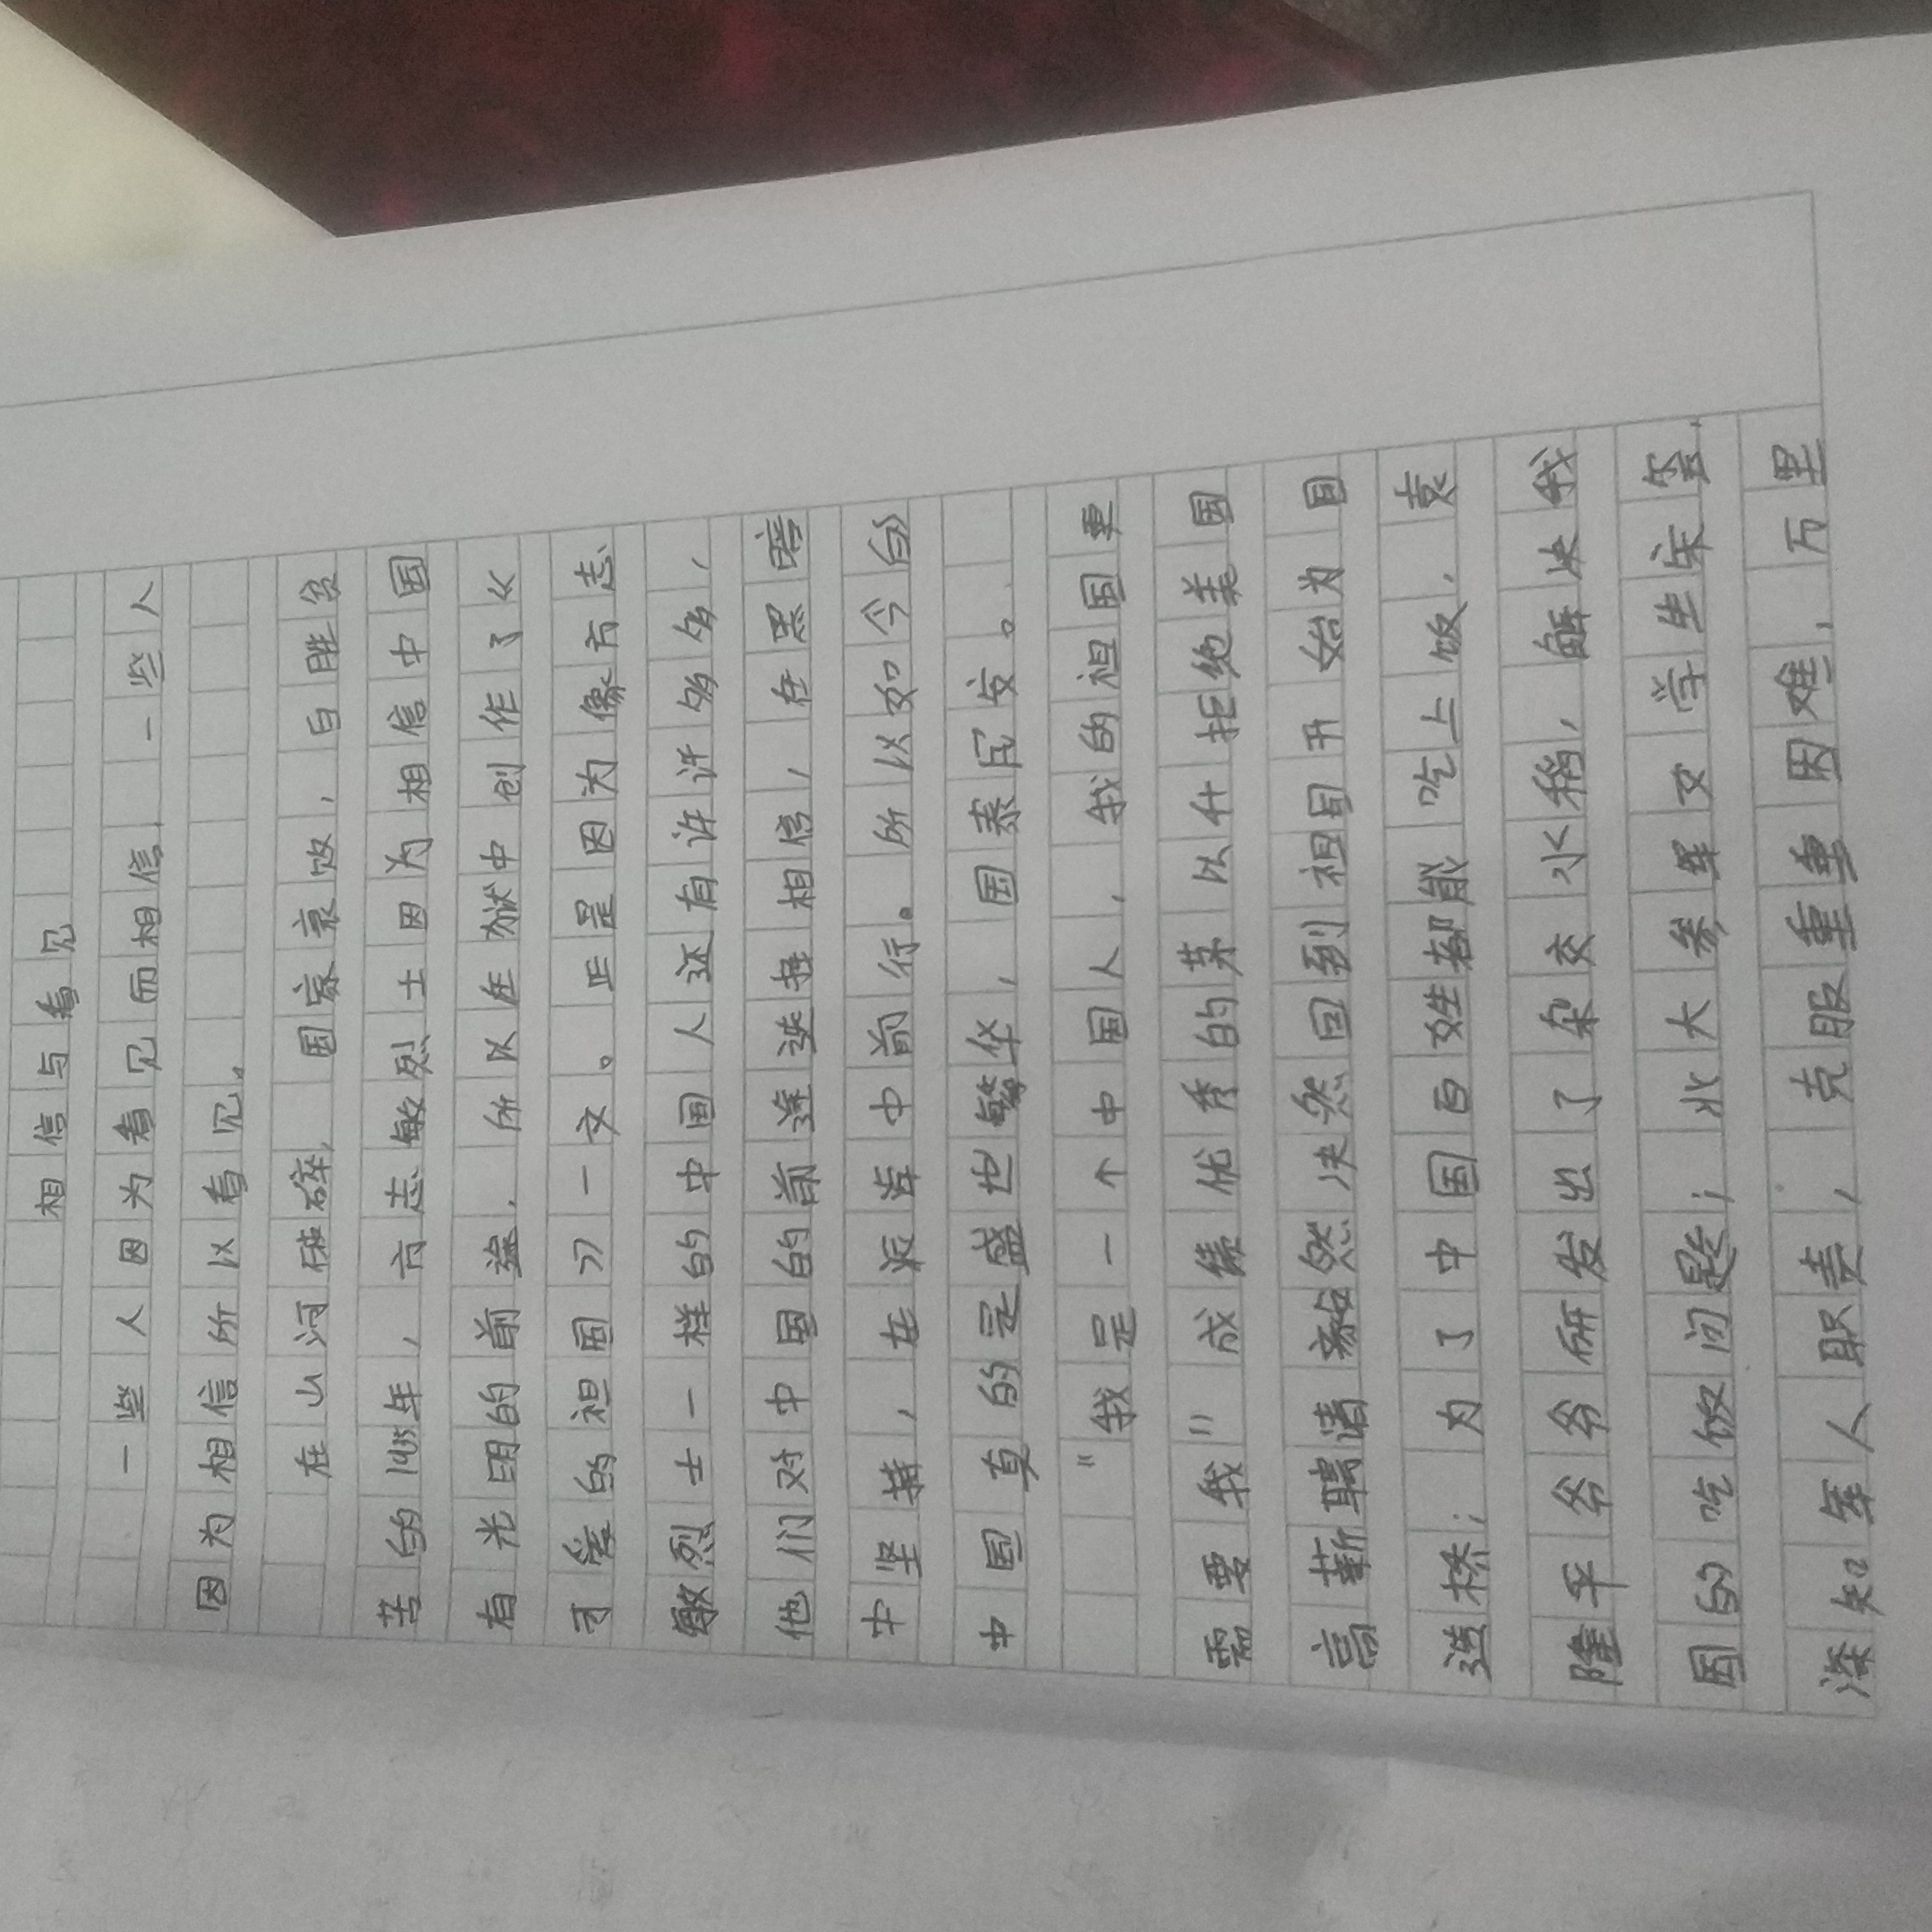 相信与看见
一些人因为看见而相信，一些人
因为相信所以看见。
在山河破碎，国家衰败，白胜贫
苦的1935年，方志敏烈士因为相信中国
有光明的前途，所以在狱中创作了《
可爱的祖国》一文。正是因为像方志
敏烈士一样的中国人还有许许多多，
他们对中国的前途选择相信，在黑暗
中坚持，在泥泞中前行。所以如今的
中国真的是盛世繁华，国泰民安。
“我是一个中国人，我的祖国更
需要我”成绩优秀的茅以升拒绝美国
高薪聘请毅然决然回到祖国开始为国
造桥；为了中国百姓都能吃上饭，袁
隆平爷爷研发出了杂交水稻，解决我
国的吃饭问题；北大参军女学生宋玺，
深知军人职责，克服重重困难，万里